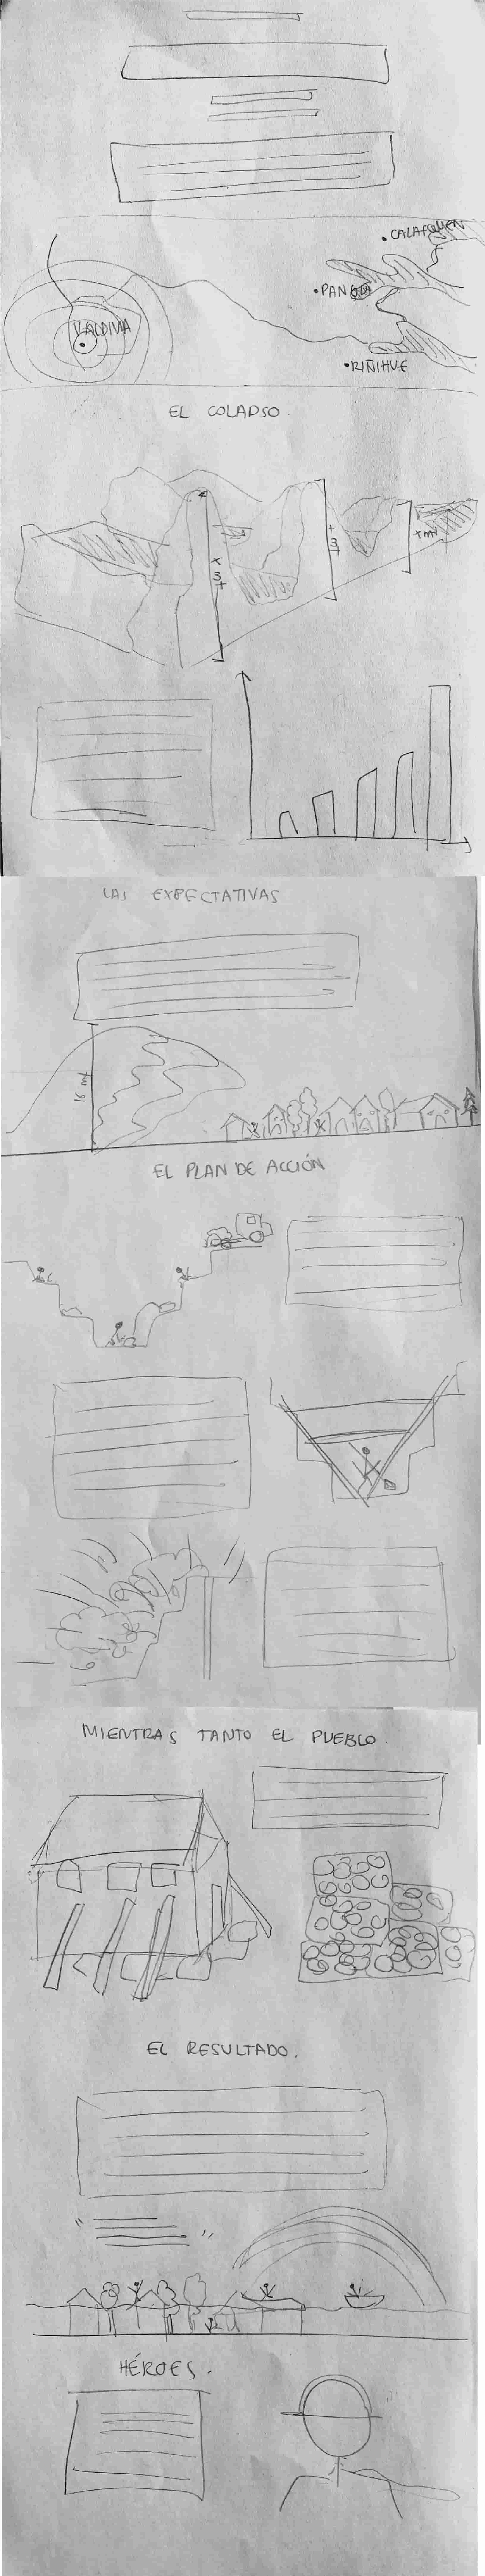 CALAFQUEN
PANGUI
VALDIVIA
RIÑIHUE
EL COLAPSO.
+
3
+
x
3
+
x mt
LAS EXPECTATIVAS
16 mt
EL PLAN DE ACCIÓN
MIENTRAS TANTO EL PUEBLO.
EL RESULTADO.
" "
HÉROES.